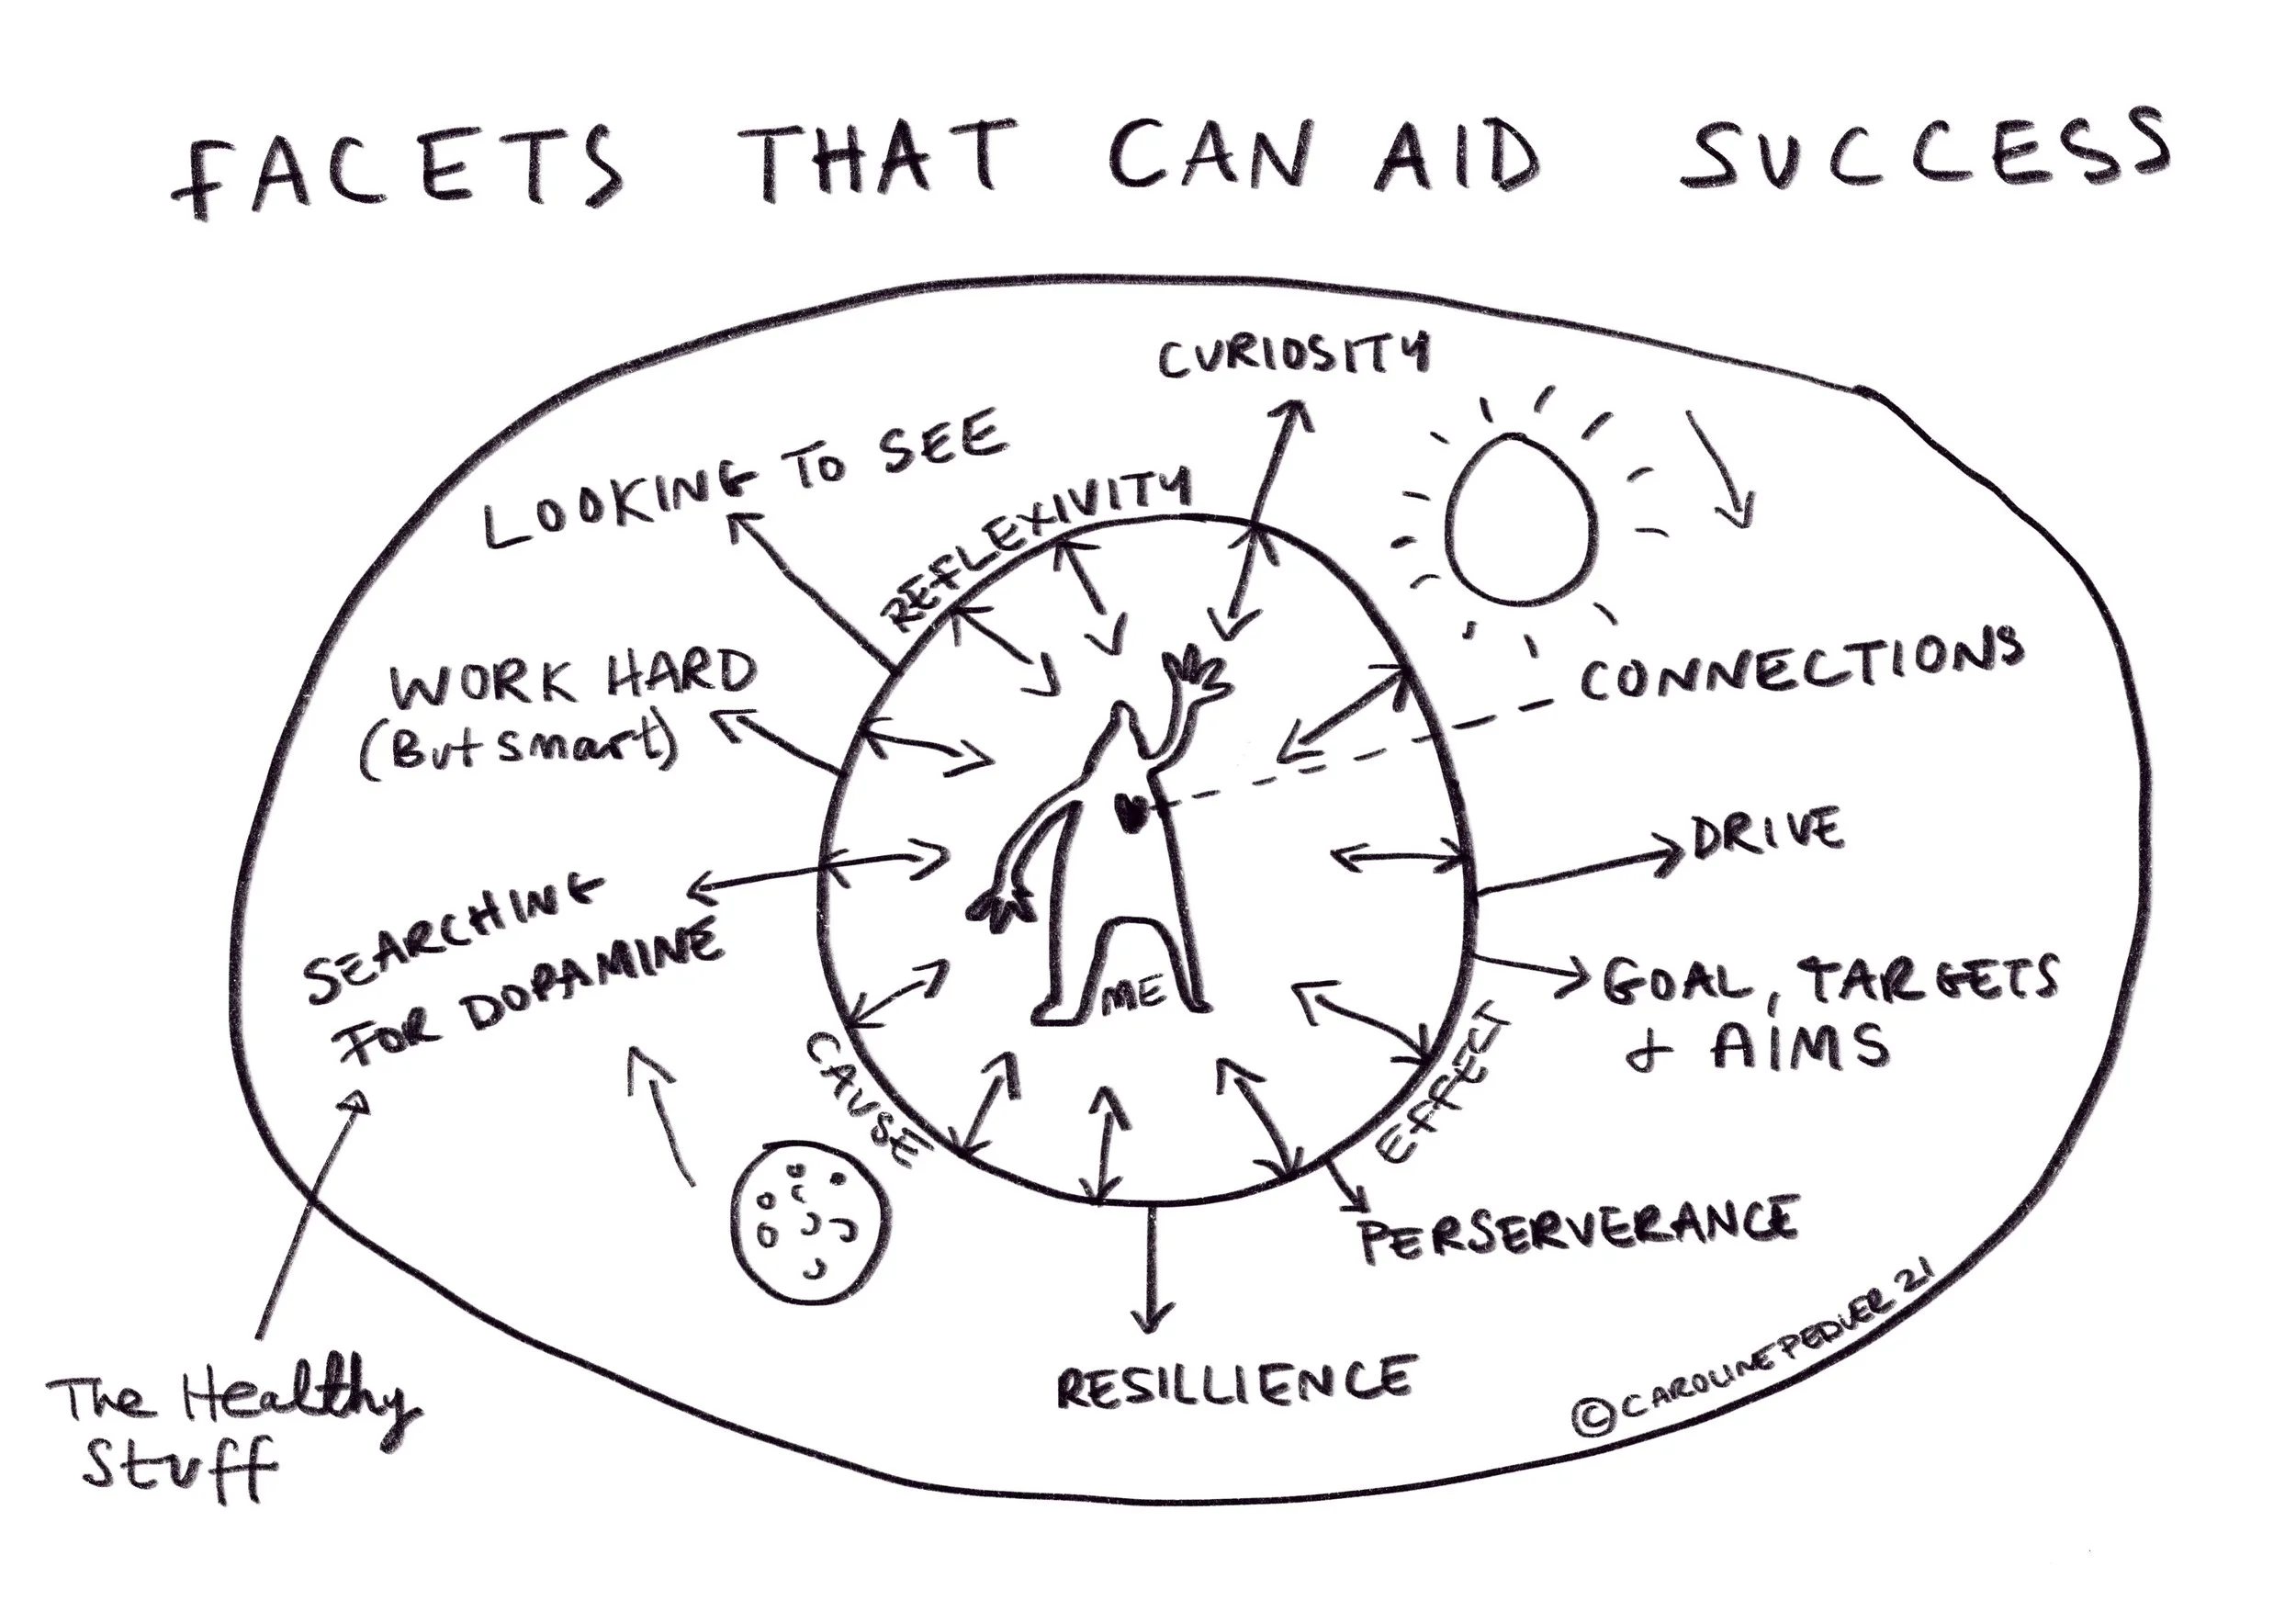 FACETS THAT CAN AID SUCCESS
CURIOSITY
LOOKING TO SEE
REFLEXIVITY
WORK HARD
(But smart)
CONNECTIONS
DRIVE
SEARCHING
FOR DOPAMINE
GOAL, TARGETS
+ AIMS
ME
CAUSE
EFFECT
PERSERVERANCE
RESILLIENCE
The Healthy
Stuff
©CAROLINEPEDLER 21